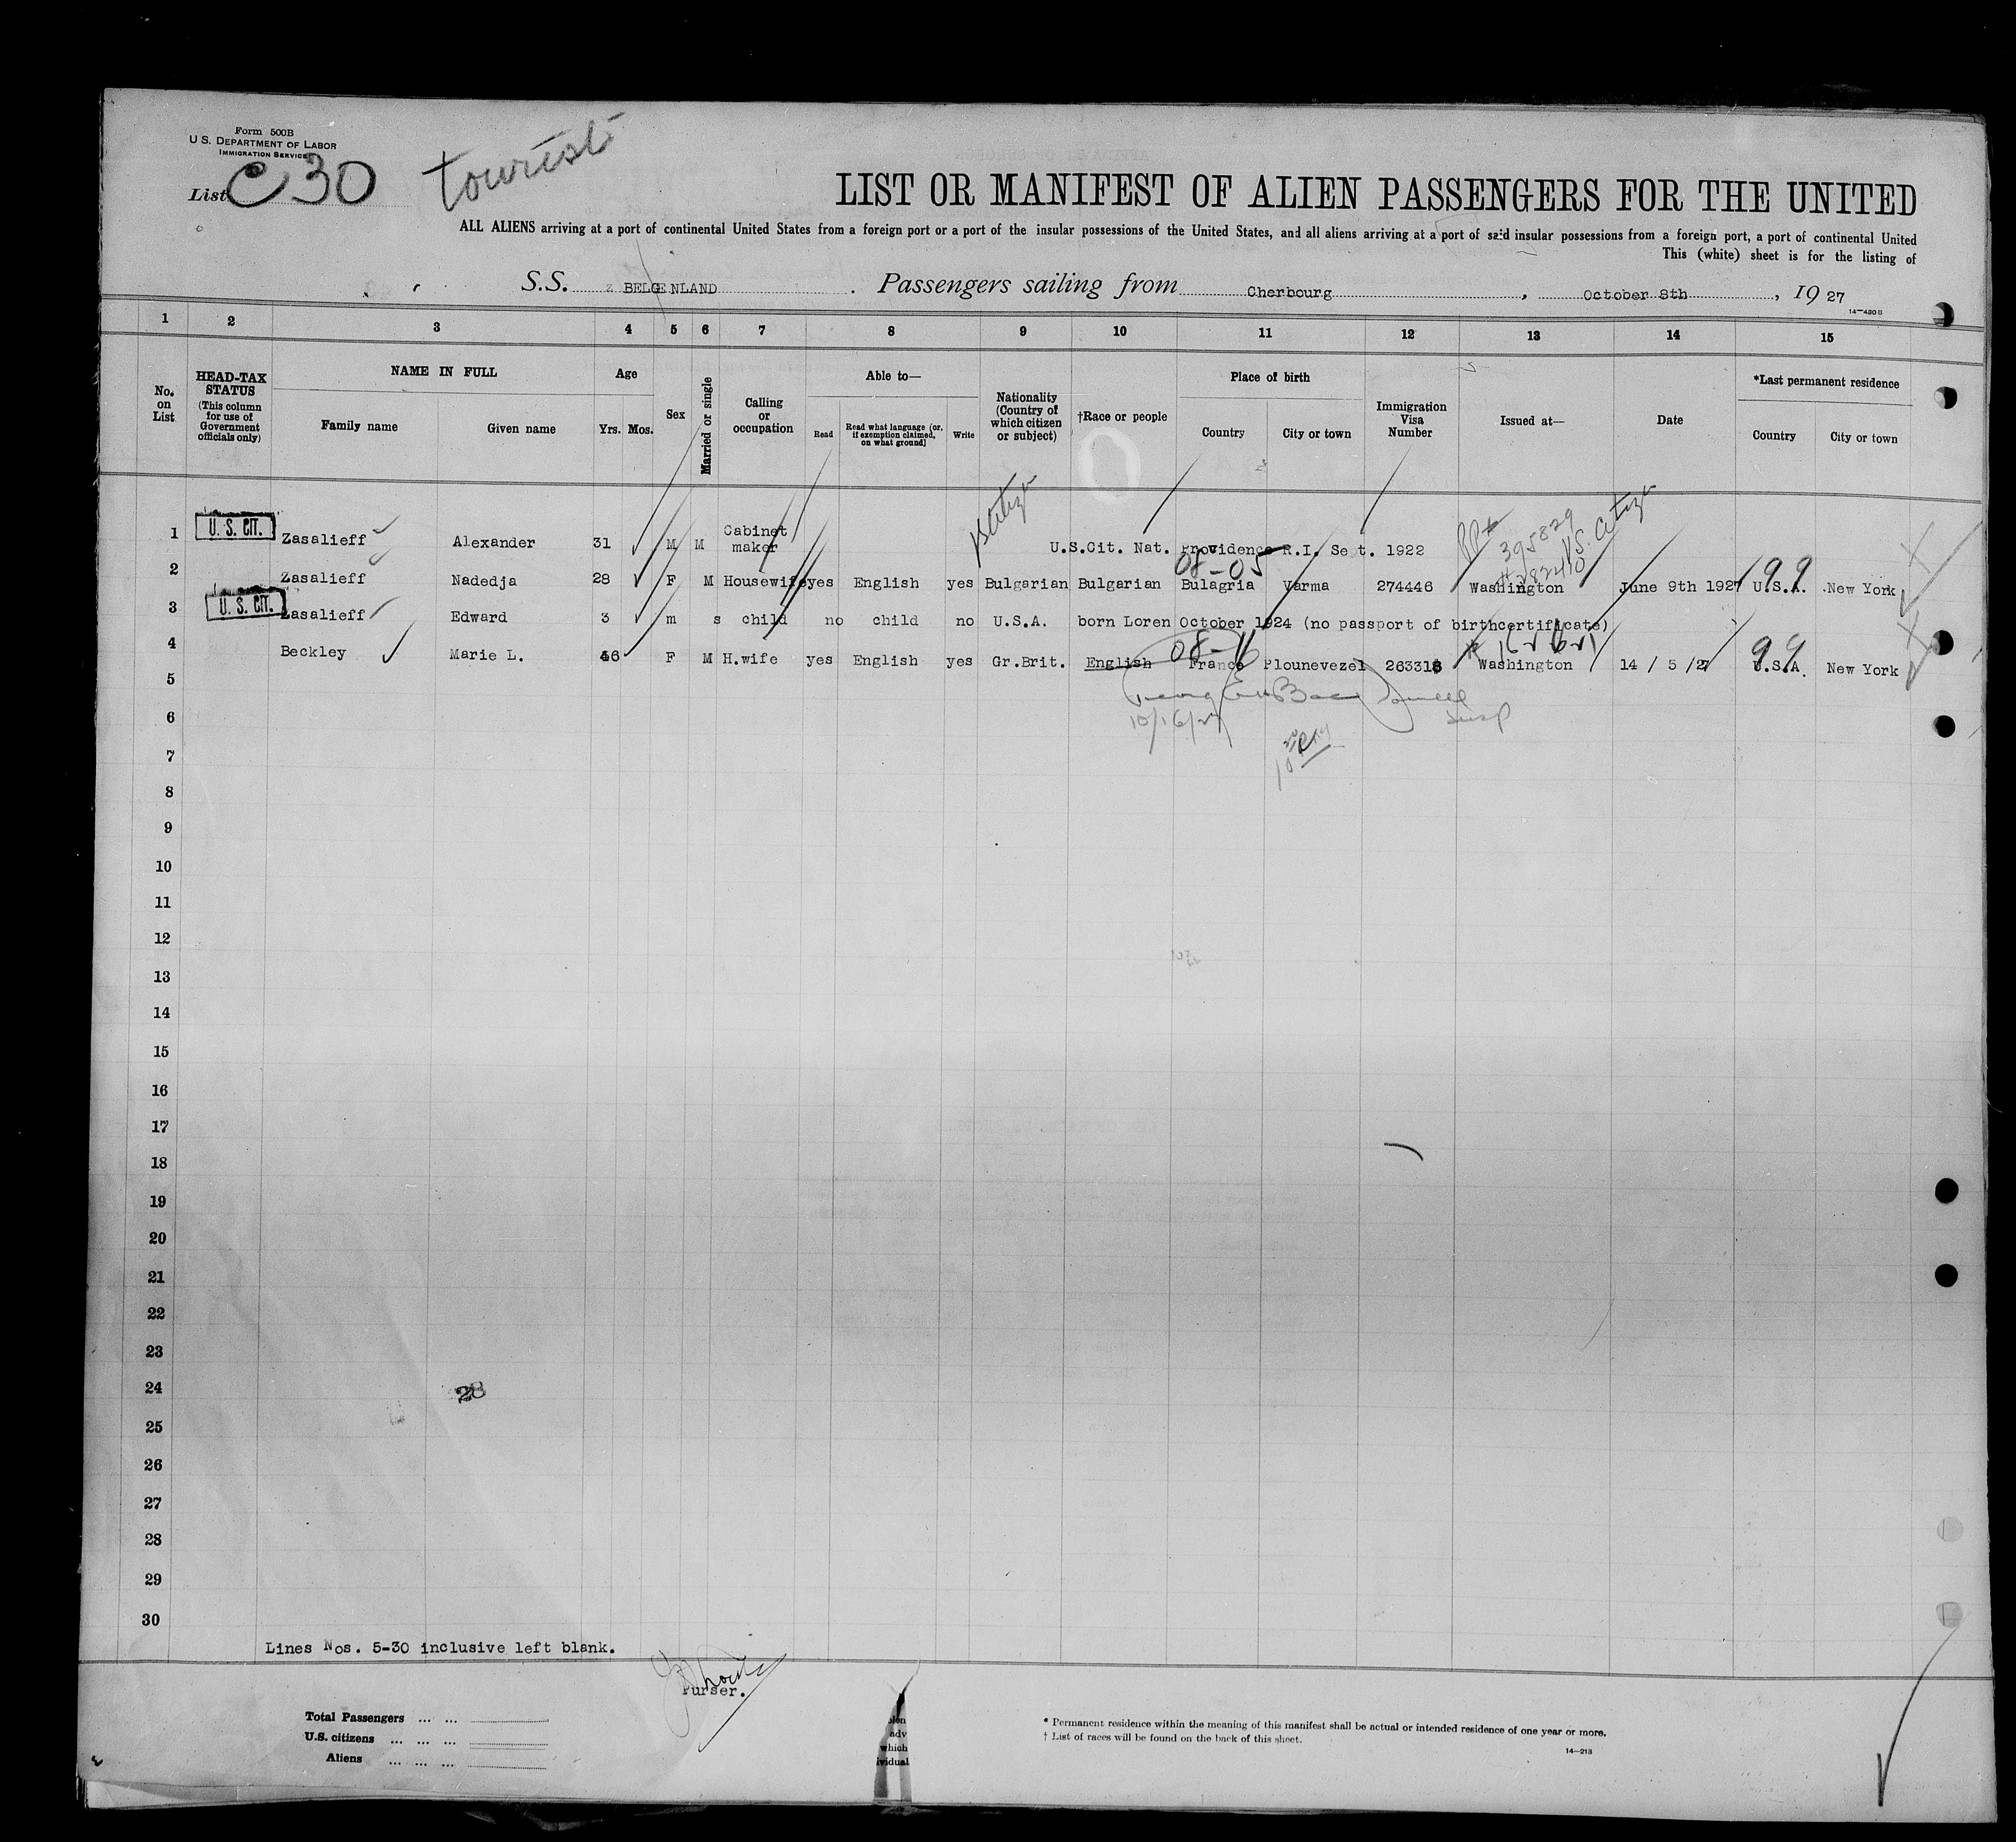 Form 500B
U S. DEPARTMENT OF LABOR
IMMIGRATION SERVICE
List C 30 tourist
LIST OR MANIFEST OF ALIEN PASSENGERS FOR THE UNITED
ALL ALIENS arriving at a port of continental United States from a foreign port or a port of the insular possessions of the United States, and all aliens arriving at a port of said insular possessions from a foreign port, a port of continental United
This (white) sheet is for the listing of
S.S. BELGENLAND. Passengers sailing from Cherbourg, October 8th, 19 27
14—430 B
1 2 3 4 5 6 7 8 9 10 11 12 13 14 15
No. on List
HEAD-TAX STATUS (This column for use of Government officials only)
NAME IN FULL
Family name Given name
Age
Yrs. Mos.
Sex
Married or single
Calling or occupation
Able to—
Read Read what language (or, if exemption claimed, on what ground) Write
Nationality (Country of which citizen or subject)
†Race or people
Place of birth
Country City or town
Immigration Visa Number
Issued at—
Date
*Last permanent residence
Country City or town
1 U. S. CIT. Zasalieff Alexander 31 M M Cabinet maker U.S.Cit. Nat. Providence R.I. Se t. 1922 395829 U.S. Citizen
08-05
2 Zasalieff Nadedja 28 F M Housewife yes English yes Bulgarian Bulgarian Bulagria Varma 274446 Washington June 9th 1927 U.S.A. New York
99
3 U. S. CIT. Zasalieff Edward 3 m s child no child no U.S.A. born Loren October 1924 (no passport of birthcertificate)
08-16
4 Beckley Marie L. 46 F M H.wife yes English yes Gr.Brit. English France Plounevezel 263318 Washington 14 / 5 /27 U.S.A. New York
99
5
10/16/27
6
7
8
9
10
11
12
13
14
15
16
17
18
19
20
21
22
23
24 28
25
26
27
28
29
30
Lines Nos. 5-30 inclusive left blank.
Purser.
Total Passengers ... ...
U.S. citizens ... ... ...
Aliens ... ... ...
which
ividual
* Permanent residence within the meaning of this manifest shall be actual or intended residence of one year or more.
† List of races will be found on the back of this sheet.
14—213